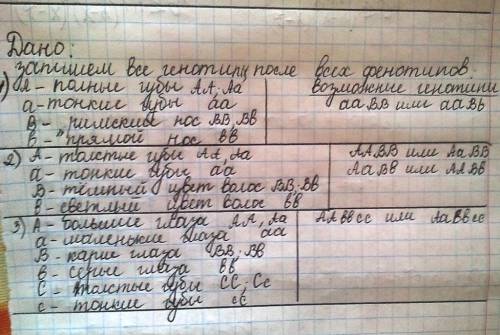 Дано:
запишем все генотипы после всех фенотипов.
1) А - полные губы АА, Аа возможные генотипы
а - тонкие губы аа ааВВ или ааВв
В - римский нос ВВ, Вв
в - прямой нос вв
2) А - толстые губы АА, Аа ААВВ или АаВВ
а - тонкие губы аа АаВв или ААВв
В - тёмный цвет волос ВВ, Вв
в - светлый цвет волос вв
3) А - большие глаза АА, Аа ААввсс или Ааввсс
а - маленькие глаза аа
В - карие глаза ВВ; Вв
в - серые глаза вв
С - толстые губы СС; Сс
с - тонкие губы сс